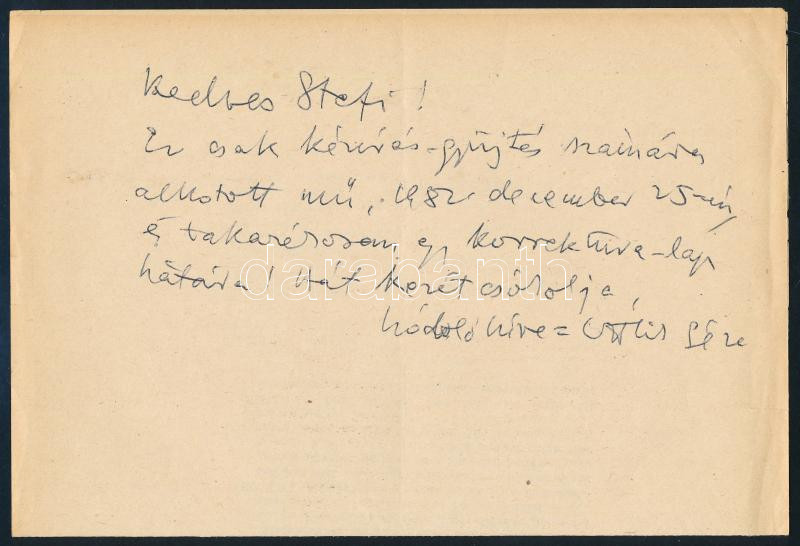 Kedves Stefi!
Ez csak kézírás-gyűjtés számára
alkotott mű, 1982. december 25-én,
és takarékosan, egy korrektura-lap
hátára! Hát kezét csókolja,
hódoló híve = Ottlik Géza
darabanth